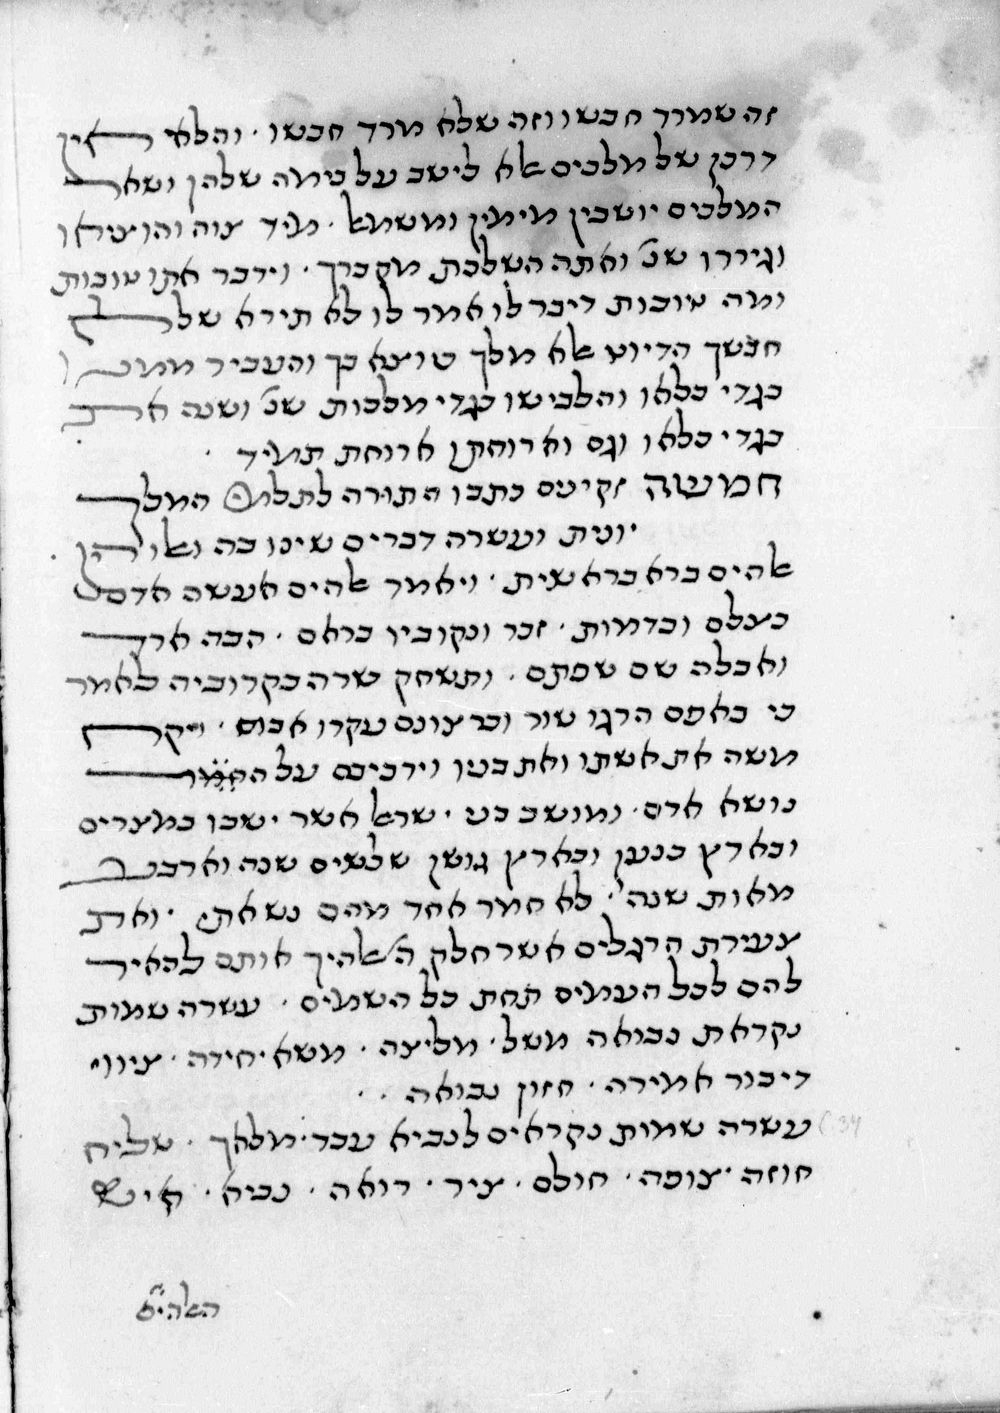 זה שמרד חבשו וזה שלא מרד חבשו · והלא אין
דרכן של מלכים אלא לישב על בימה שלהן ושאר
המלכים יושבין מימין ומשמאל · מיד צוה והוציאו
וגיררו שנ' ואתה השלכת מקברך · וידבר אתו טובות
ומה טובות דיבר לו אמר לו לא תירא שלא
חבשך הדיוט אלא מלך הוציא כך והעביר ממנו
בגדי כלאו והלבישו בגדי מלכות שנ' ושנה את
בגדי כלאו וגם וארוחתו ארוחת תמיד ·
חמשה זקינים כתבו התורה לתלמי המלך
יונית ועשרה דברים שינו בה ואלו הן
אלהים ברא בראשית · ויאמר אלהים אעשה אדם
בצלם ובדמות · זכר ונקוביו בראם · הבה ארדה
ואבלה שם שפתם · ותשחק שרה בקרוביה לאמר
כי באפם הרגו שור וברצונם עקרו אבוס · ויקח
משה את אשתו ואת בניו וירכיבם על
נושא אדם · ומושב בני ישראל אשר ישבו במצרים
ובארץ כנען ובארץ גושן שלשים שנה וארבע
מאות שנה · לא חמד אחד מהם נשאתי · ואת
צעירת הרגלים אשר חלק ה' אלהיך אותם להאיר
להם לכל העמים תחת כל השמים · עשרה שמות
נקראת נבואה משל · מליצה · משא · חידה · ציווי
דיבור אמירה · חזון נבואה · ·
עשרה שמות נקראים לנביא עבד · מלאך · שליח
חוזה · צופה · חולם · ציר · רואה · נביא · איש
האלהים